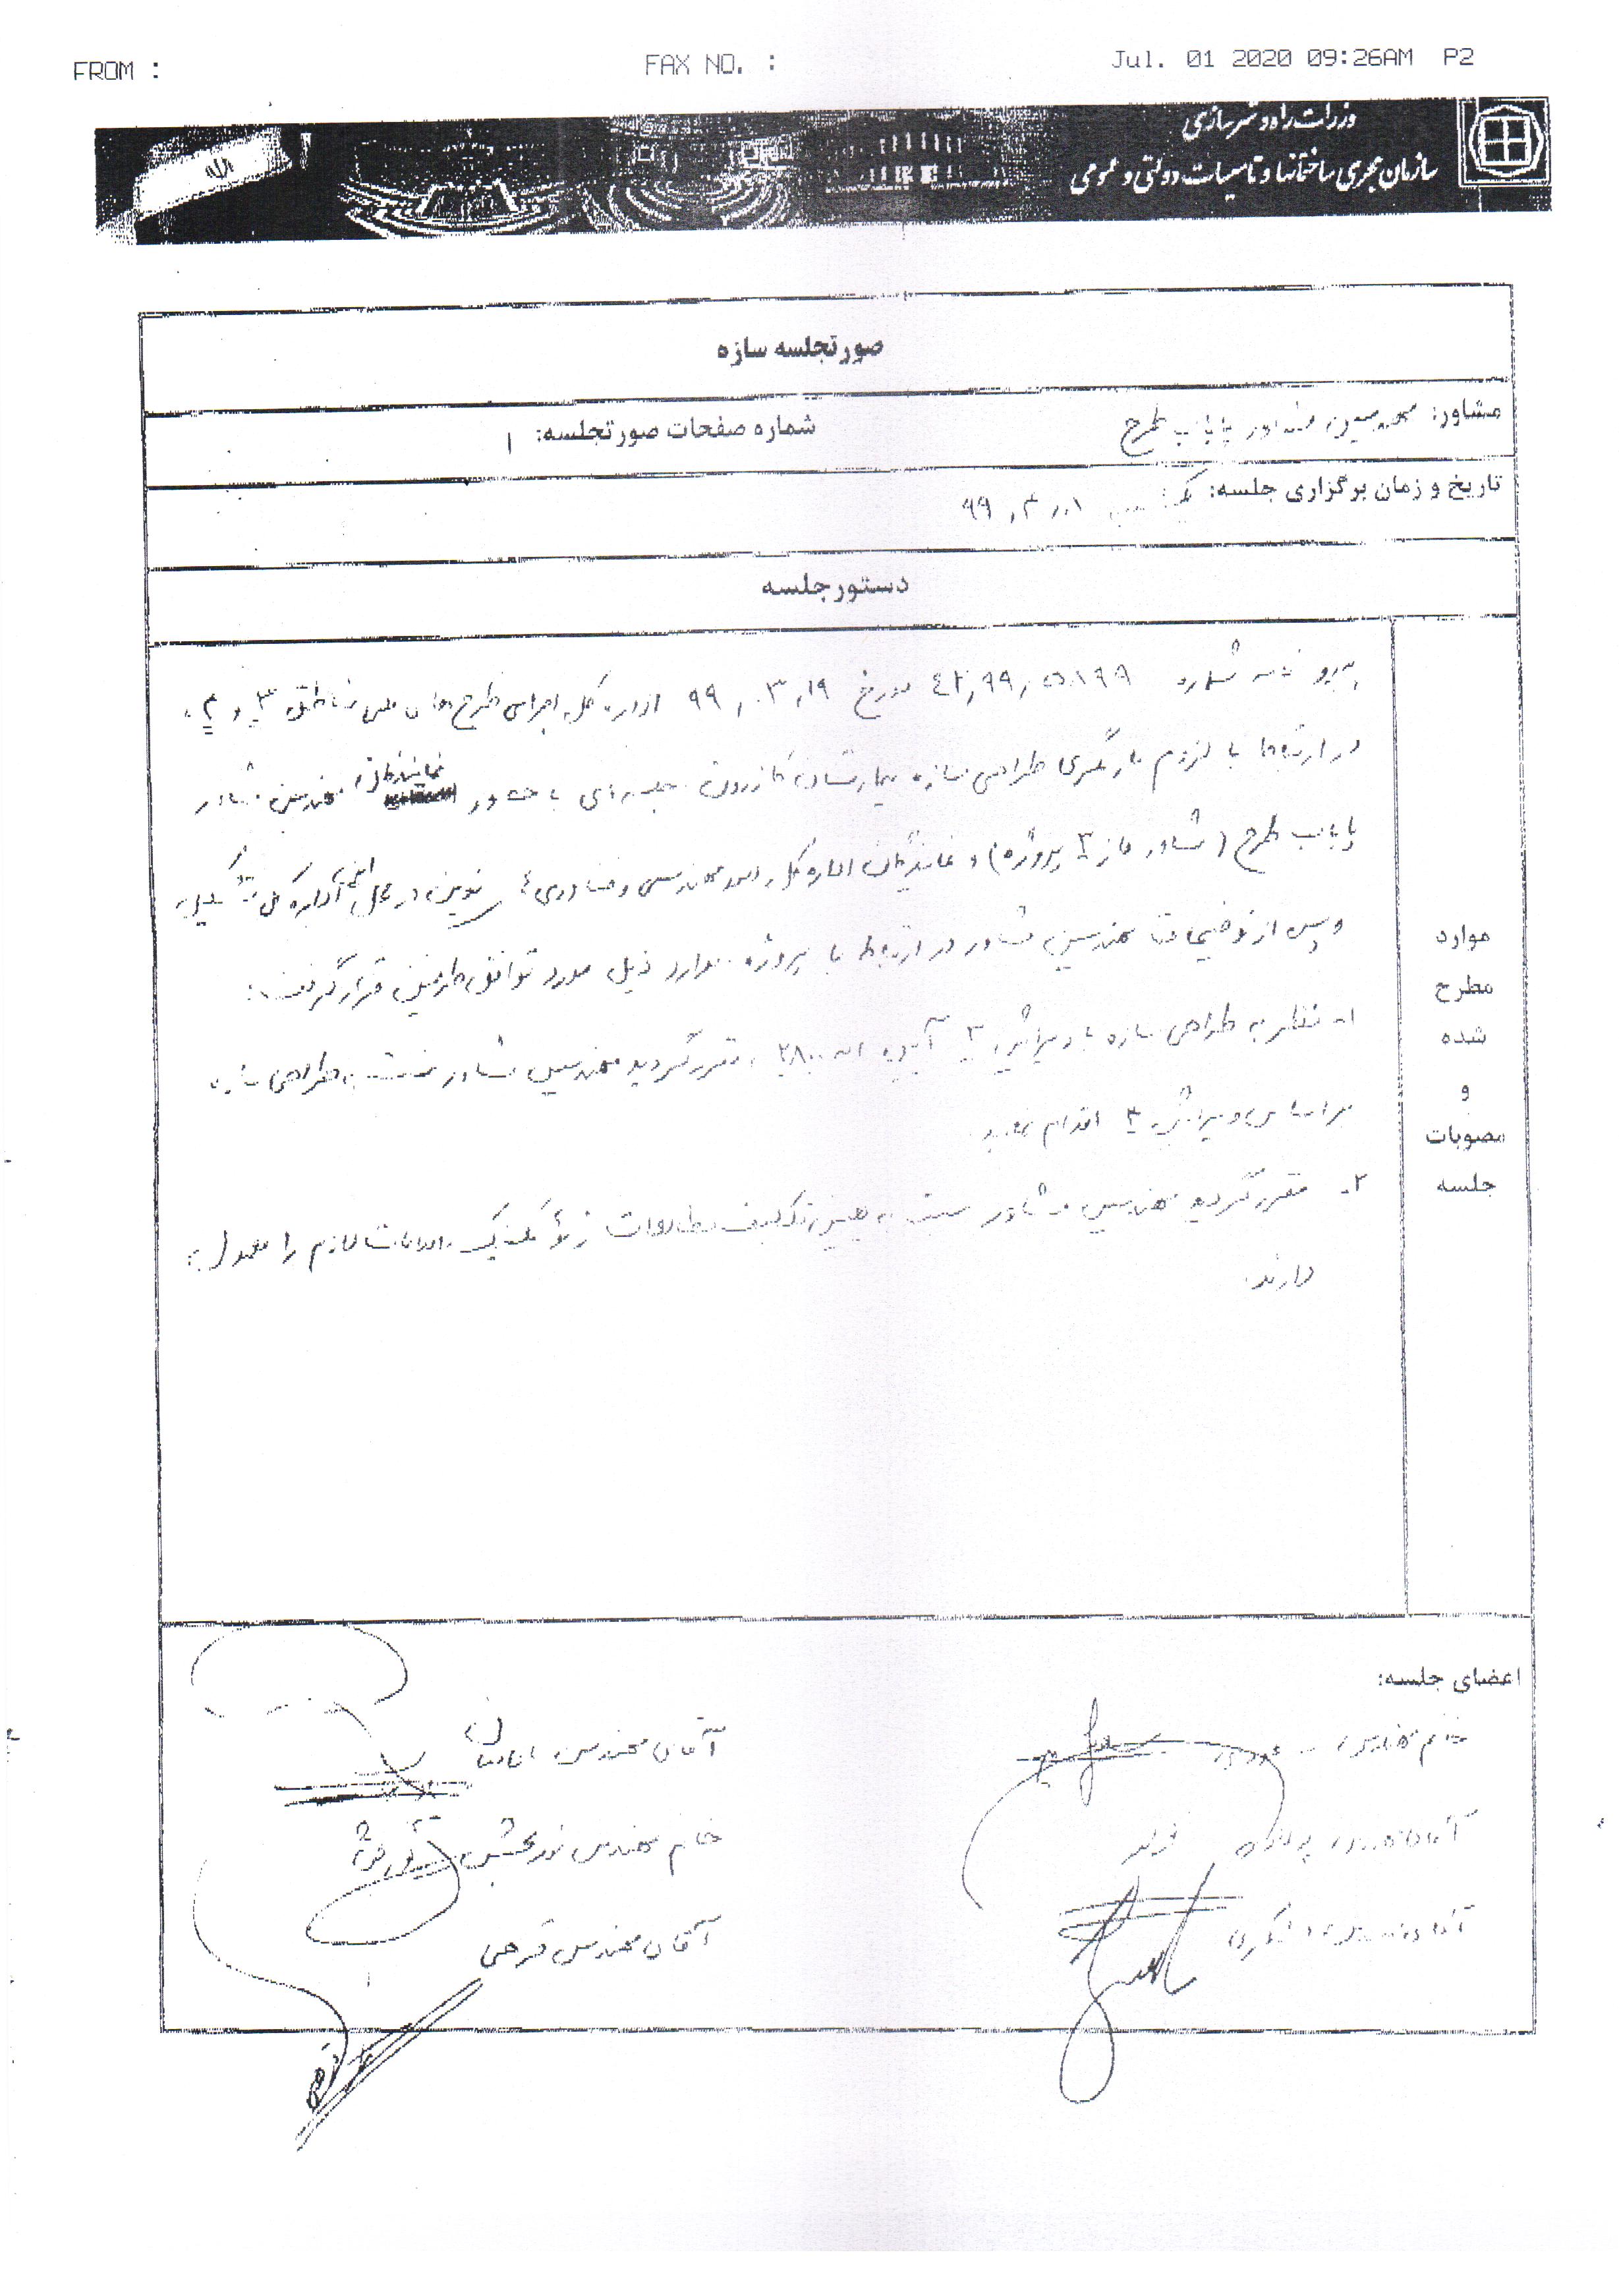 FROM :
FAX NO. :
Jul. 01 2020 09:26AM P2
وزارت راه و شهرسازی
سازمان مجری ساختمانها و تاسیسات دولتی و عمومی
صورتجلسه سازه
مشاور: مهندسین مشاور پایاب طرح
شماره صفحات صورتجلسه: ۱
تاریخ و زمان برگزاری جلسه: یکشنبه ۹۹
دستور جلسه
مواد
مطرح
شده
و
مصوبات
جلسه
پیرو نامه شماره ۴۲/۹۹/۰۵۸۹۹ مورخ ۹۹/۰۳/۱۹ اداره کل اجرای طرح های ملی مناطق ۳ و ۴،
در ارتباط با لزوم بازنگری طراحی سازه بیمارستان کازرون جلسه ای با حضور نمایندگان مهندسین مشاور
پایاب طرح (مشاور فاز ۳ پروژه) و نمایندگان اداره کل امور مهندسی و فناوری های نوین در محل این اداره کل تشکیل
و پس از توضیحات مهندسین مشاور در ارتباط با پروژه موارد ذیل مورد توافق طرفین قرار گرفت:
۱- نظر به طراحی سازه با ویرایش ۳ آیین نامه ۲۸۰۰، مقرر گردید مهندسین مشاور نسبت به طراحی سازه
بر اساس ویرایش ۴ اقدام نماید.
۲- مقرر گردید مهندسین مشاور نسبت به تعیین تکلیف مطالعات ژئوتکنیک اقدامات لازم را معمول
دارند.
اعضای جلسه:
خانم مهندس
آقای مهندس
خانم مهندس نوربخش
آقای مهندس
آقای مهندس فرحی
آقای مهندس